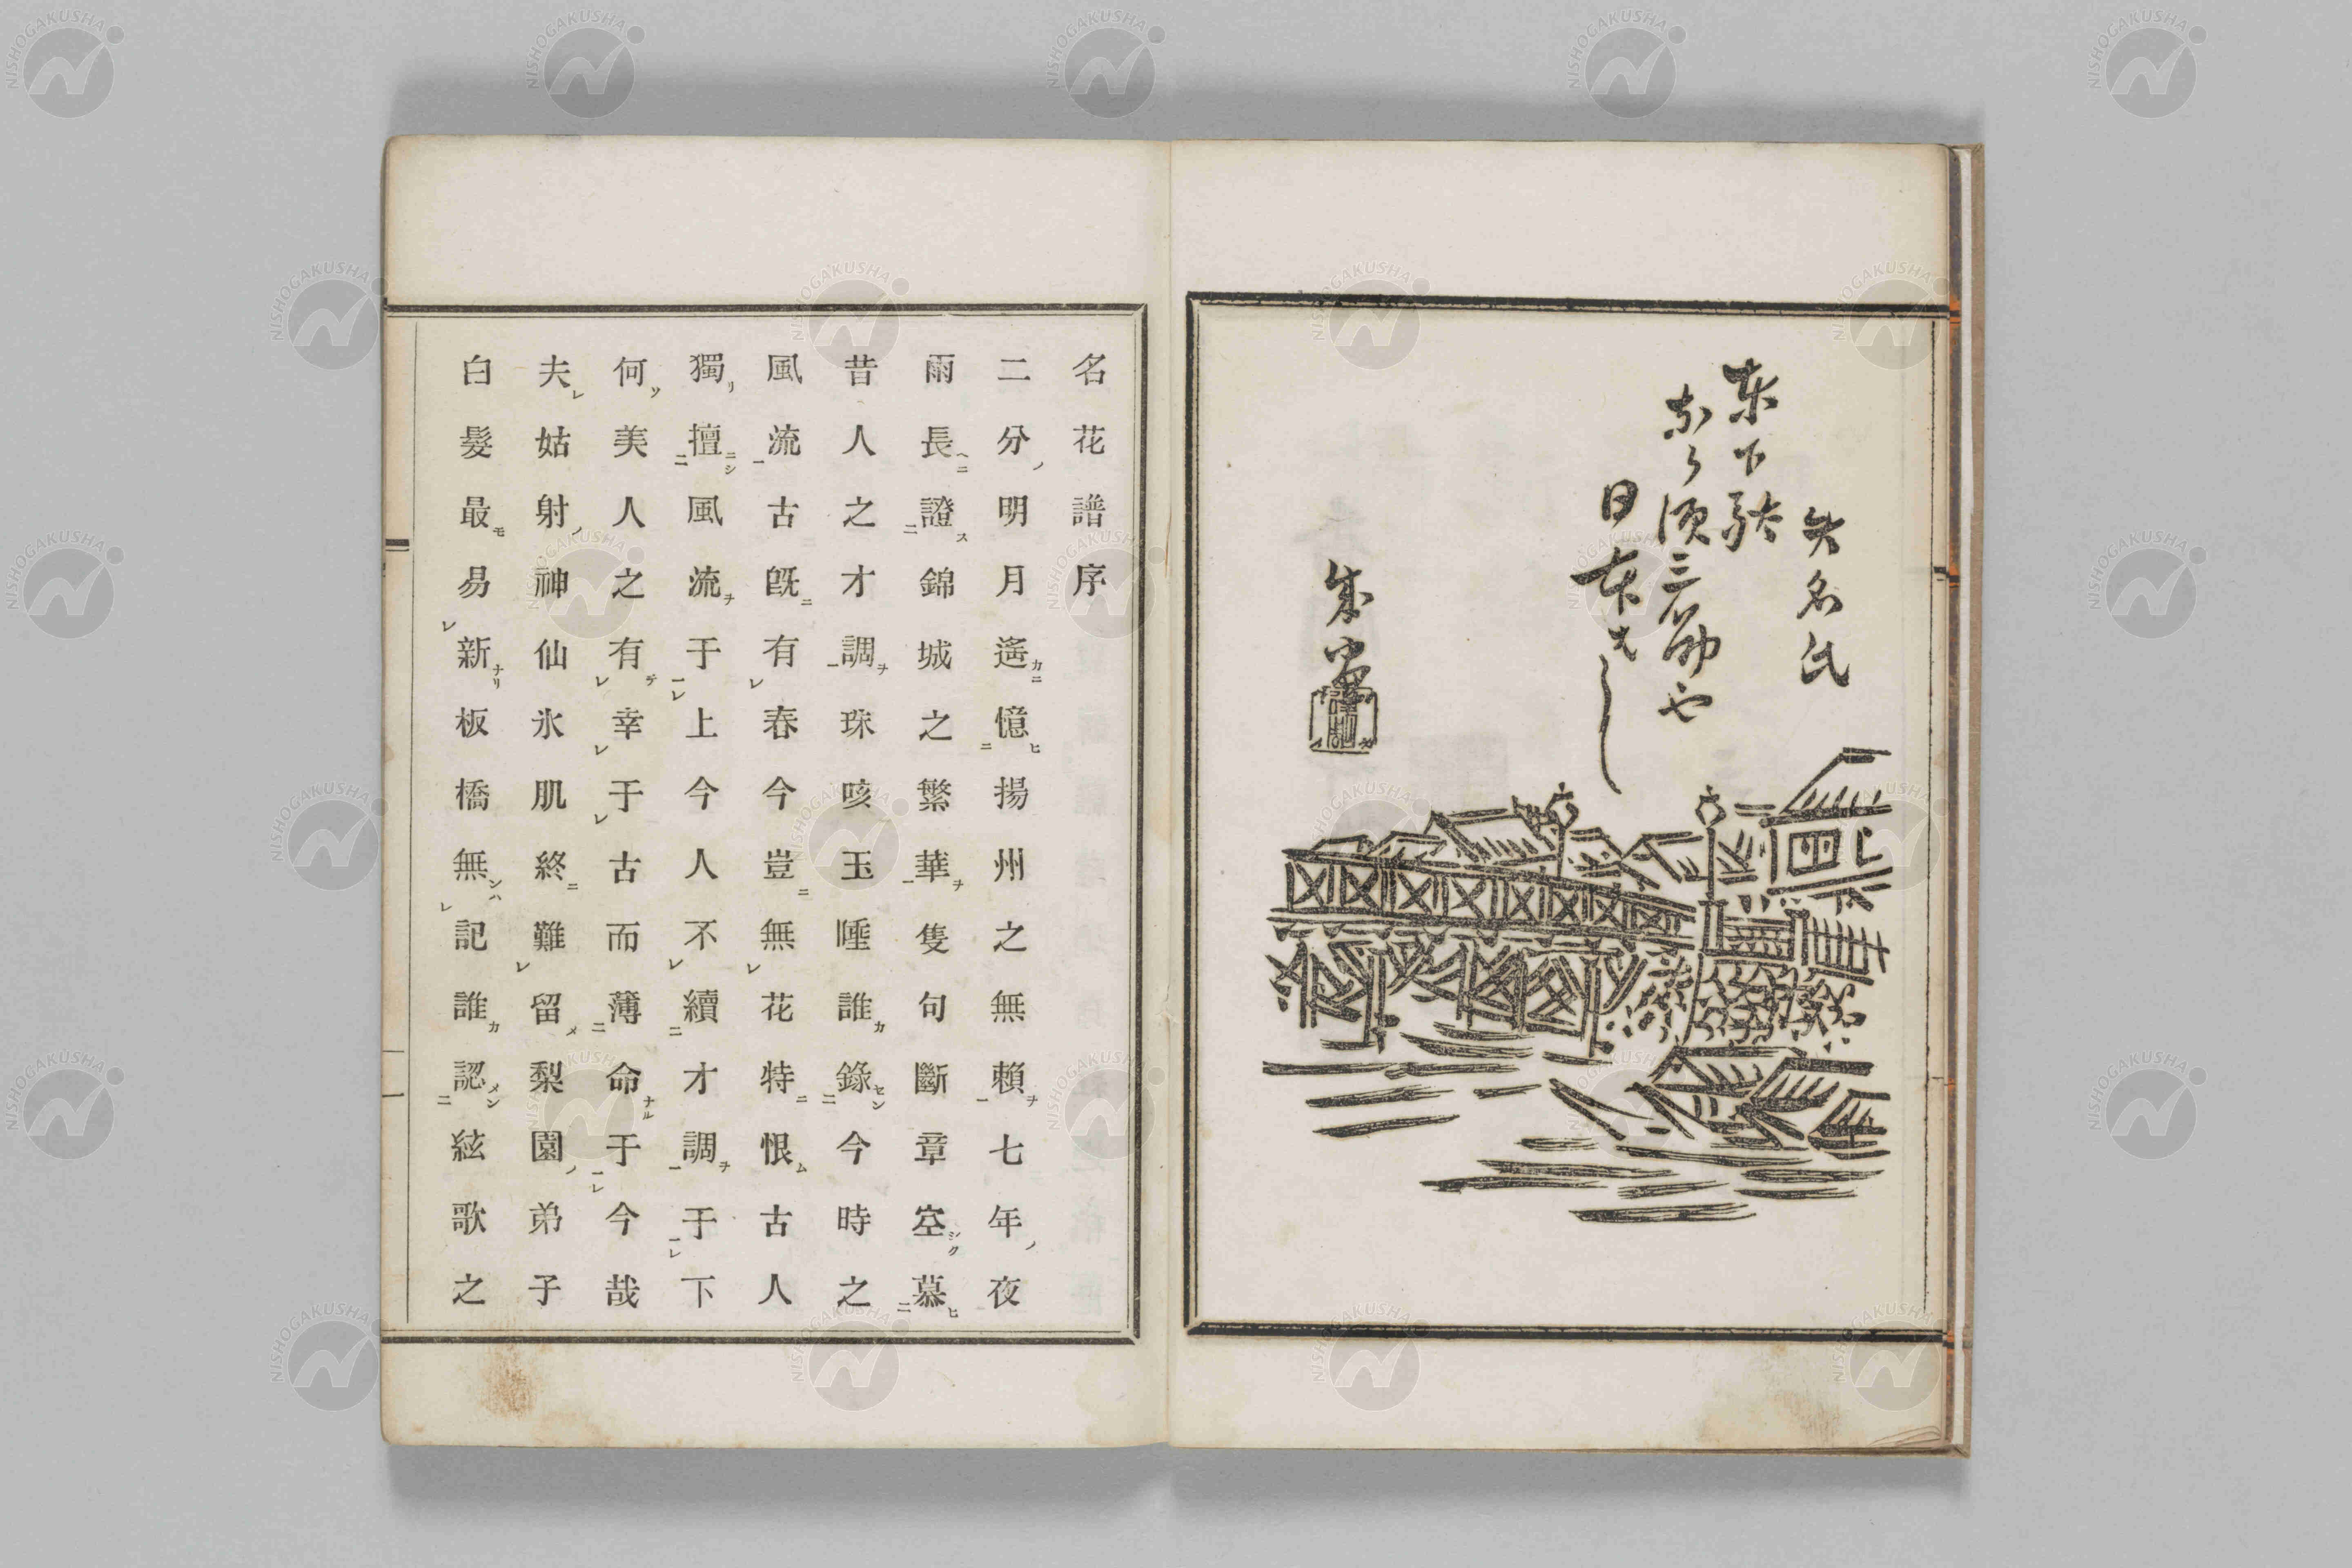 失名氏
東下駄
なら須三筋や
日本はし
名花譜序
二分明月遙憶揚州之無賴七年夜
雨長證錦城之繁華隻句斷章空慕
昔人之才調珠咳玉唾誰錄今時之
風流古既有春今豈無花特恨古人
獨擅風流于上今人不續才調于下
何美人之有幸于古而薄命于今哉
夫姑射神仙氷肌終難留梨園弟子
白髮最易新板橋無記誰認絃歌之
一
NISHOGAKUSHA